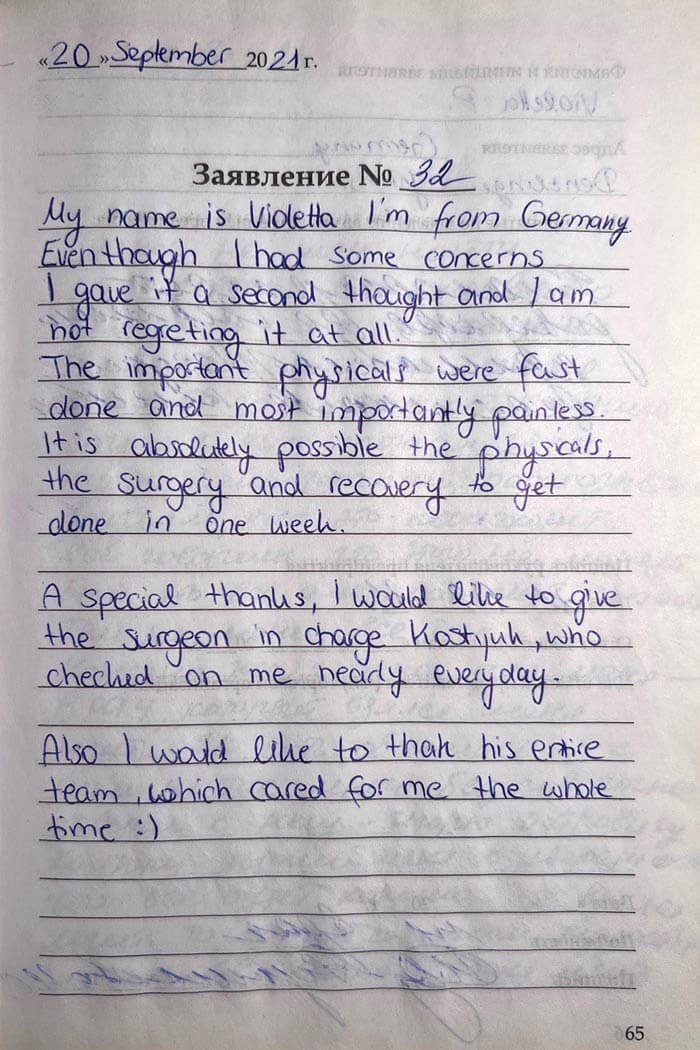 «20» September 2021 г.
Заявление № 32
My name is Violetta I'm from Germany
Eventhough I had some concerns
I gave it a second thought and I am
not regreting it at all.
The important physicals were fast
done and most importantly painless.
It is absolutely possible the physicals,
the surgery and recovery to get
done in one week.
A special thanks, I would like to give
the surgeon in charge Kostyuk, who
checked on me nearly everyday.
Also I would like to thak his entire
team, which cared for me the whole
time :)
65